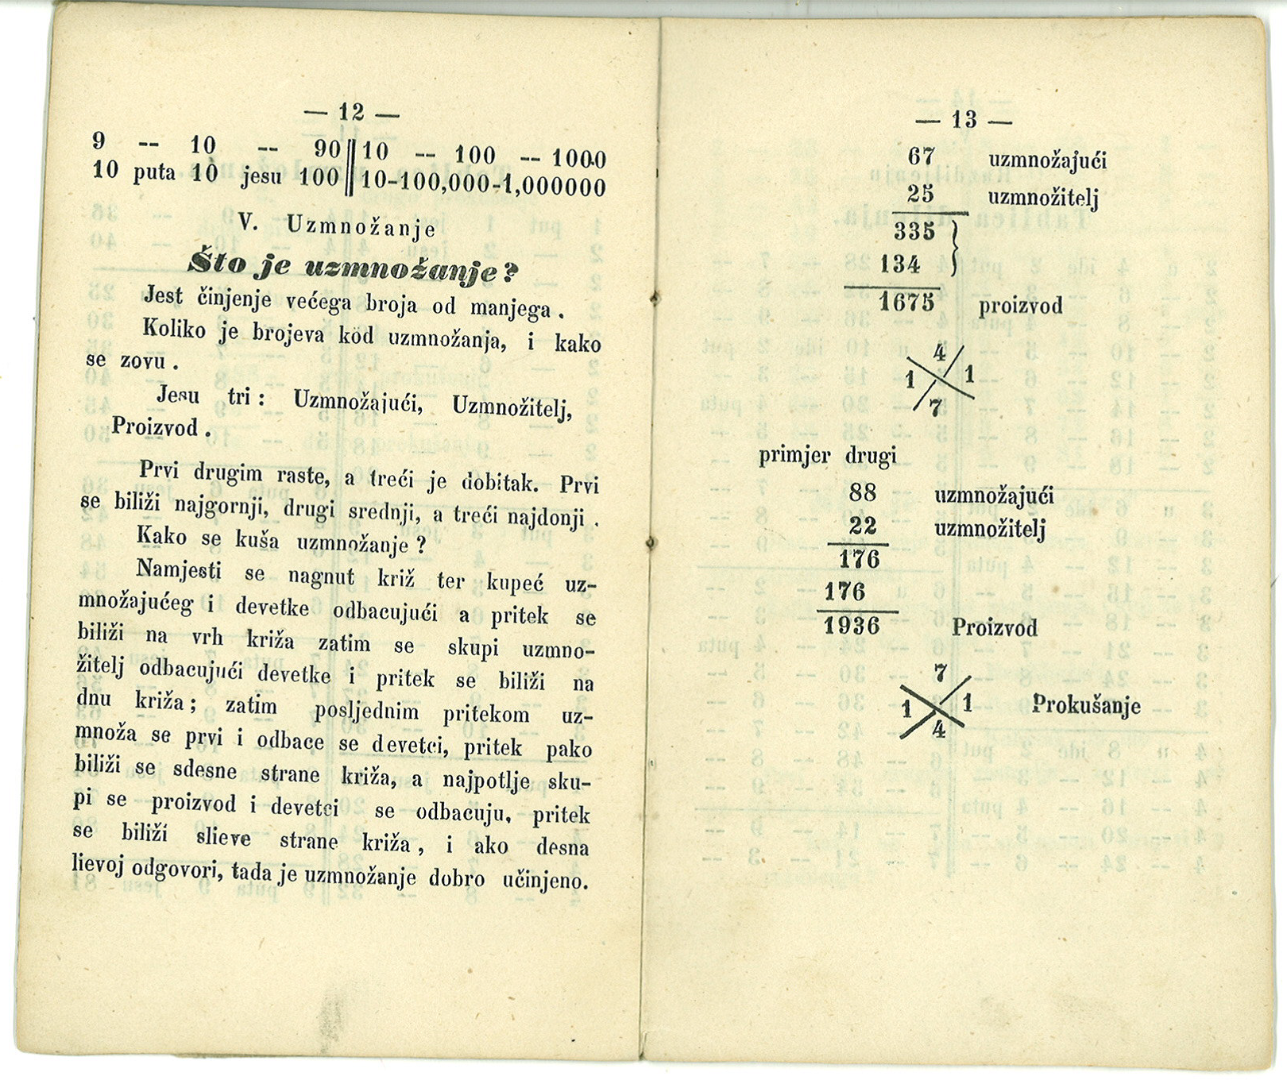 — 12 —
9 -- 10 -- 90 || 10 -- 100 -- 1000
10 puta 10 jesu 100 || 10-100,000-1,000000
V. Uzmnožanje
Što je uzmnožanje?
Jest činjenje većega broja od manjega .
Koliko je brojeva kòd uzmnožanja, i kako
se zovu .
Jesu tri : Uzmnožajući, Uzmnožitelj,
Proizvod .
Prvi drugim raste, a treći je dobitak. Prvi
se biliži najgornji, drugi srednji, a treći najdonji .
Kako se kuša uzmnožanje ?
Namjesti se nagnut križ ter kupeć uz-
množajućeg i devetke odbacujući a pritek se
biliži na vrh križa zatim se skupi uzmno-
žitelj odbacujući devetke i pritek se biliži na
dnu križa ; zatim posljednim pritekom uz-
množa se prvi i odbace se devetci, pritek pako
biliži se sdesne strane križa, a najpotlje sku-
pi se proizvod i devetci se odbacuju, pritek
se biliži slieve strane križa , i ako desna
lievoj odgovori, tada je uzmnožanje dobro učinjeno.
— 13 —
67 uzmnožajući
25 uzmnožitelj
335
134
1675 proizvod
4
1 1
7
primjer drugi
88 uzmnožajući
22 uzmnožitelj
176
176
1936 Proizvod
7
1 1 Prokušanje
4